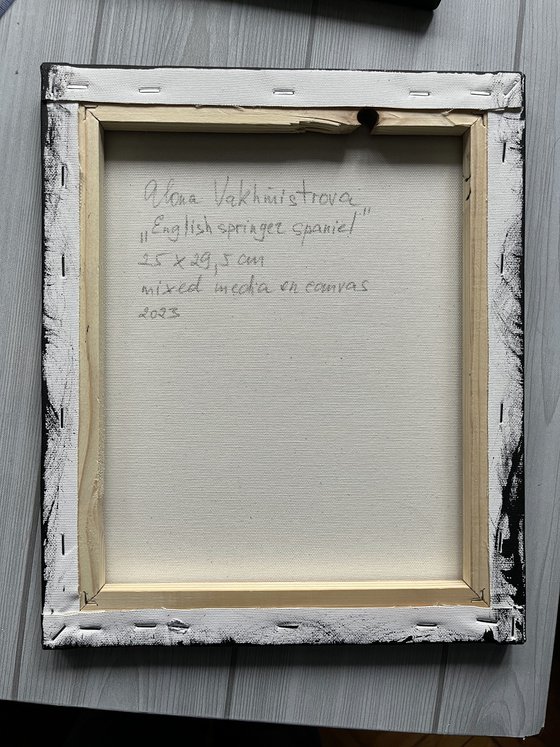 Alona Vakhmistrova
„English springer spaniel"
25 x 29,5 cm
mixed media on canvas
2023